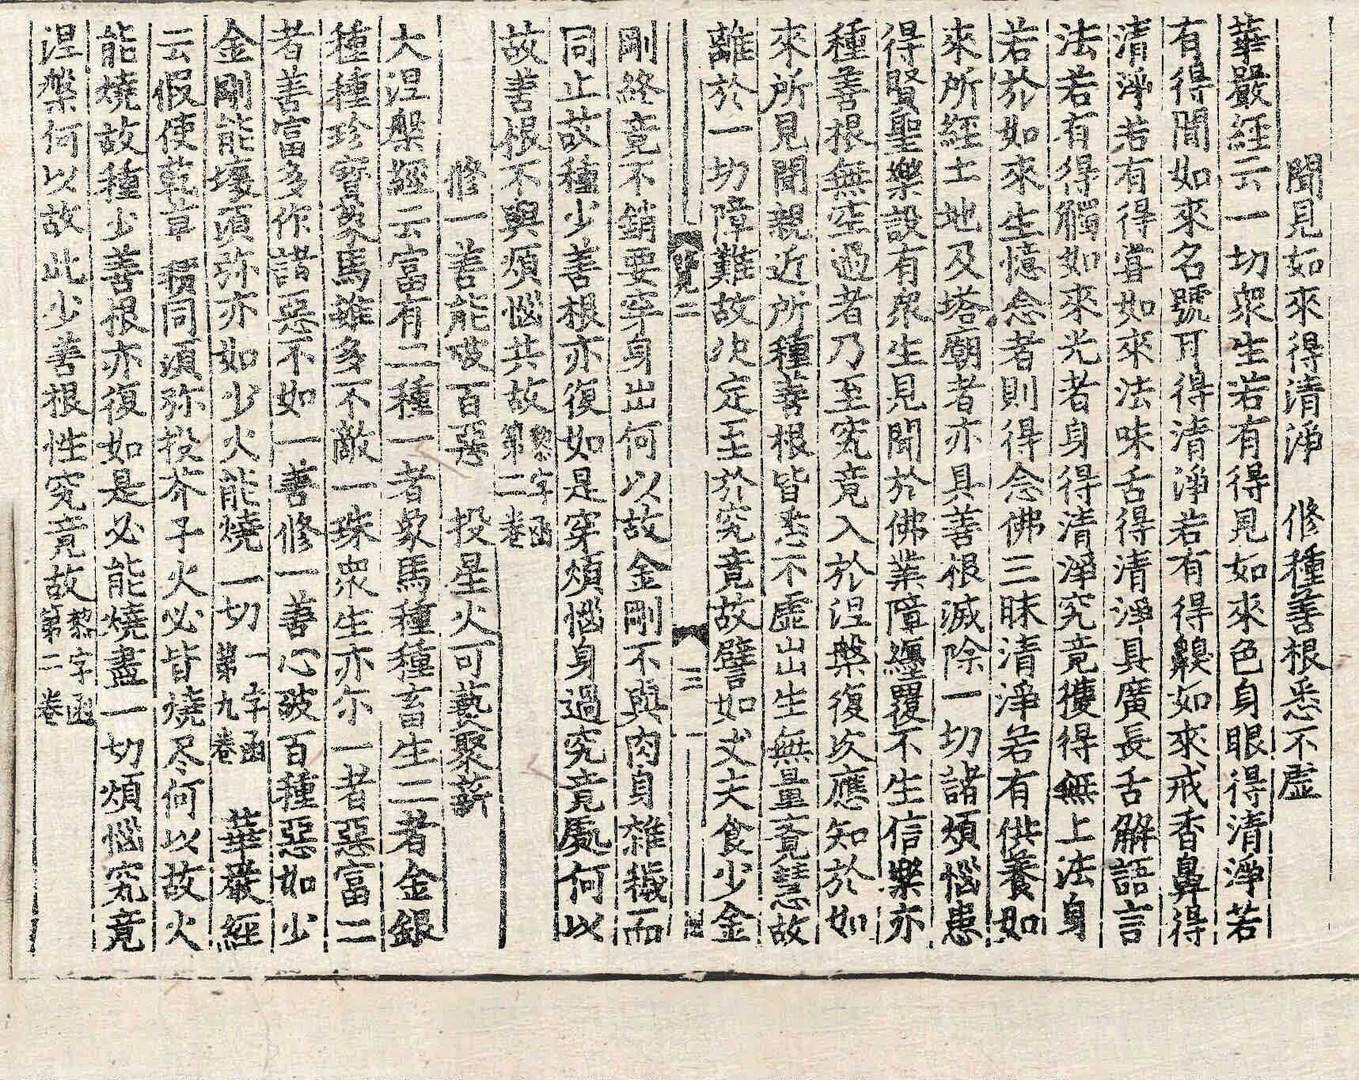 聞見如來得清淨　修種善根悉不虛
華嚴經云一切衆生若有得見如來色身眼得清淨若
有得聞如來名號耳得清淨若有得齅如來戒香鼻得
清淨若有得甞如來法味舌得清淨具廣長舌解語言
法若有得觸如來光者身得清淨究竟擭得無上法身
若於如來生憶念者則得念佛三昧清淨若有供養如
來所經土地及塔廟者亦具善根滅除一切諸煩惱患
得賢聖樂設有衆生見聞於佛業障纏覆不生信樂亦
種善根無空過者乃至究竟入於涅槃復次應知於如
來所見聞親近所種善根皆悉不虛出生無量竟慧故
離於一切障難故决定至於究竟故譬如丈夫食少金
覽二
三
剛終竟不銷要穿身出何以故金剛不與肉身雜穢而
同止故種少善根亦復如是穿煩惱身過究竟處何以
故善根不與煩惱共故黎字函第二卷
修一善能破百惡　投星火可爇聚薪
大涅槃經云富有二種一者象馬種種畜生二者金銀
種種珍寶象馬雖多不敵一珠衆生亦尔一者惡富二
者善富多作諸惡不如一善修一善心破百種惡如少
金剛能壞須弥亦如少火能燒一切一字函第九卷　華嚴經
云假使乾草積同須弥投芥子火必皆燒尽何以故火
能燒故種少善根亦復如是必能燒盡一切煩惱究竟
涅槃何以故此少善根性究竟故黎字函第二卷